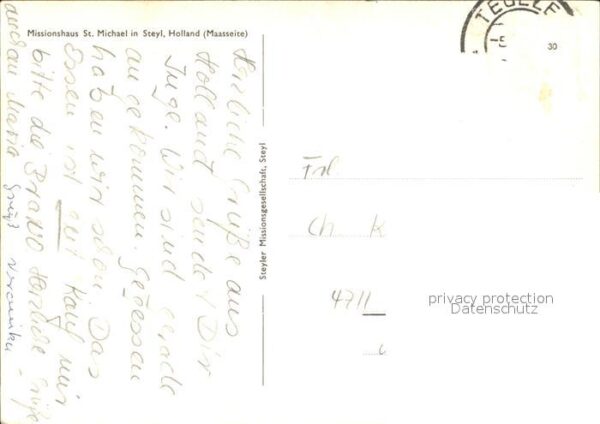 Missionshaus St. Michael in Steyl, Holland (Maasseite)
Herzliche Grüße aus
Holland sendet Dir
Inge. Wir sind gerade
angekommen. Gegessen
haben wir schon. Das
Essen ist gut. Kauf mir
bitte die BRAVO Herzliche Grüße
auch an Maria
Grüße Veronika
Steyler Missionsgesellschaft, Steyl
TEGELE
30
Frl.
Ch K
4711
privacy protection
Datenschutz